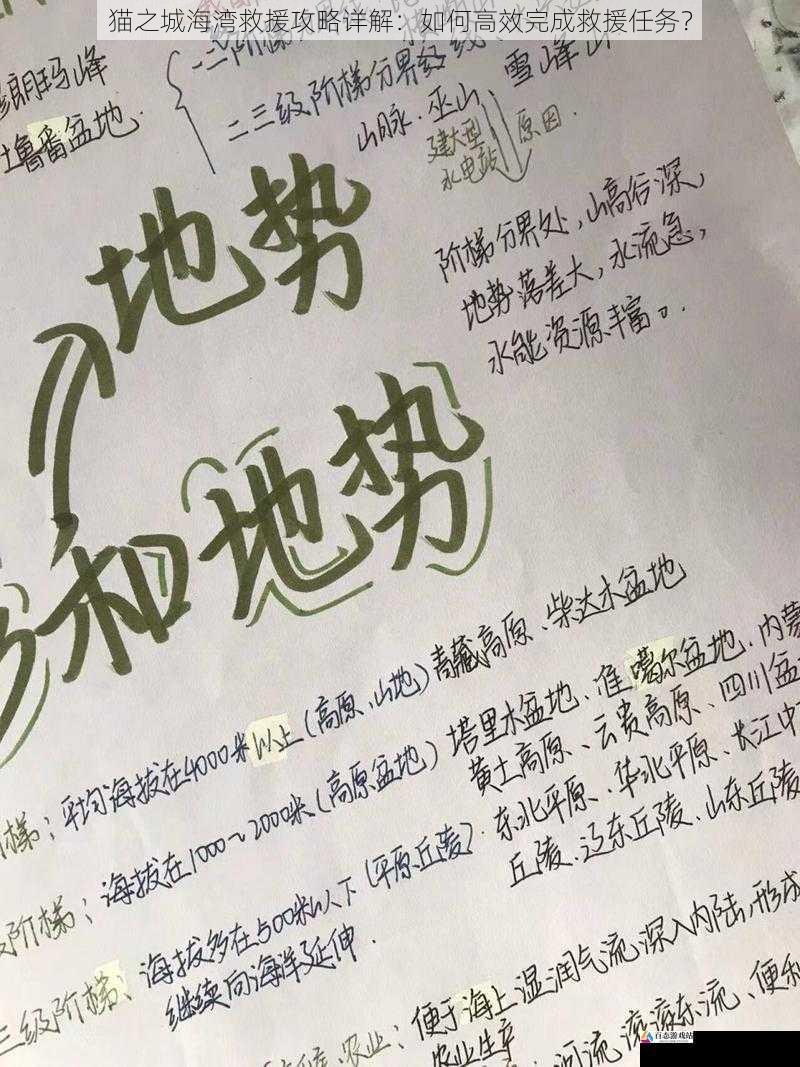 猫之城海湾救援攻略详解：如何高效完成救援任务？
二三级阶梯分界线
朗玛峰
吐鲁番盆地.
山脉.巫山、雪峰山
建大型
水电站
原因.
阶梯分界处，山高谷深，
地势落差大，水流急，
水能资源丰富。
地势
和地势
梯：平均海拔在4000米以上（高原、山地）青藏高原、柴达木盆地
阶梯：海拔在1000～2000米（高原盆地）塔里木盆地、准噶尔盆地、内蒙
黄土高原、云贵高原、四川盆
三级阶梯、海拔多在500米以下（平原丘陵）.东北平原、华北平原、长江中
丘陵、辽东丘陵、山东丘陵
继续向海洋延伸.
农业：便于海上湿润气流深入内陆，形成
农业生产
河流 东流、便利
百态游戏站